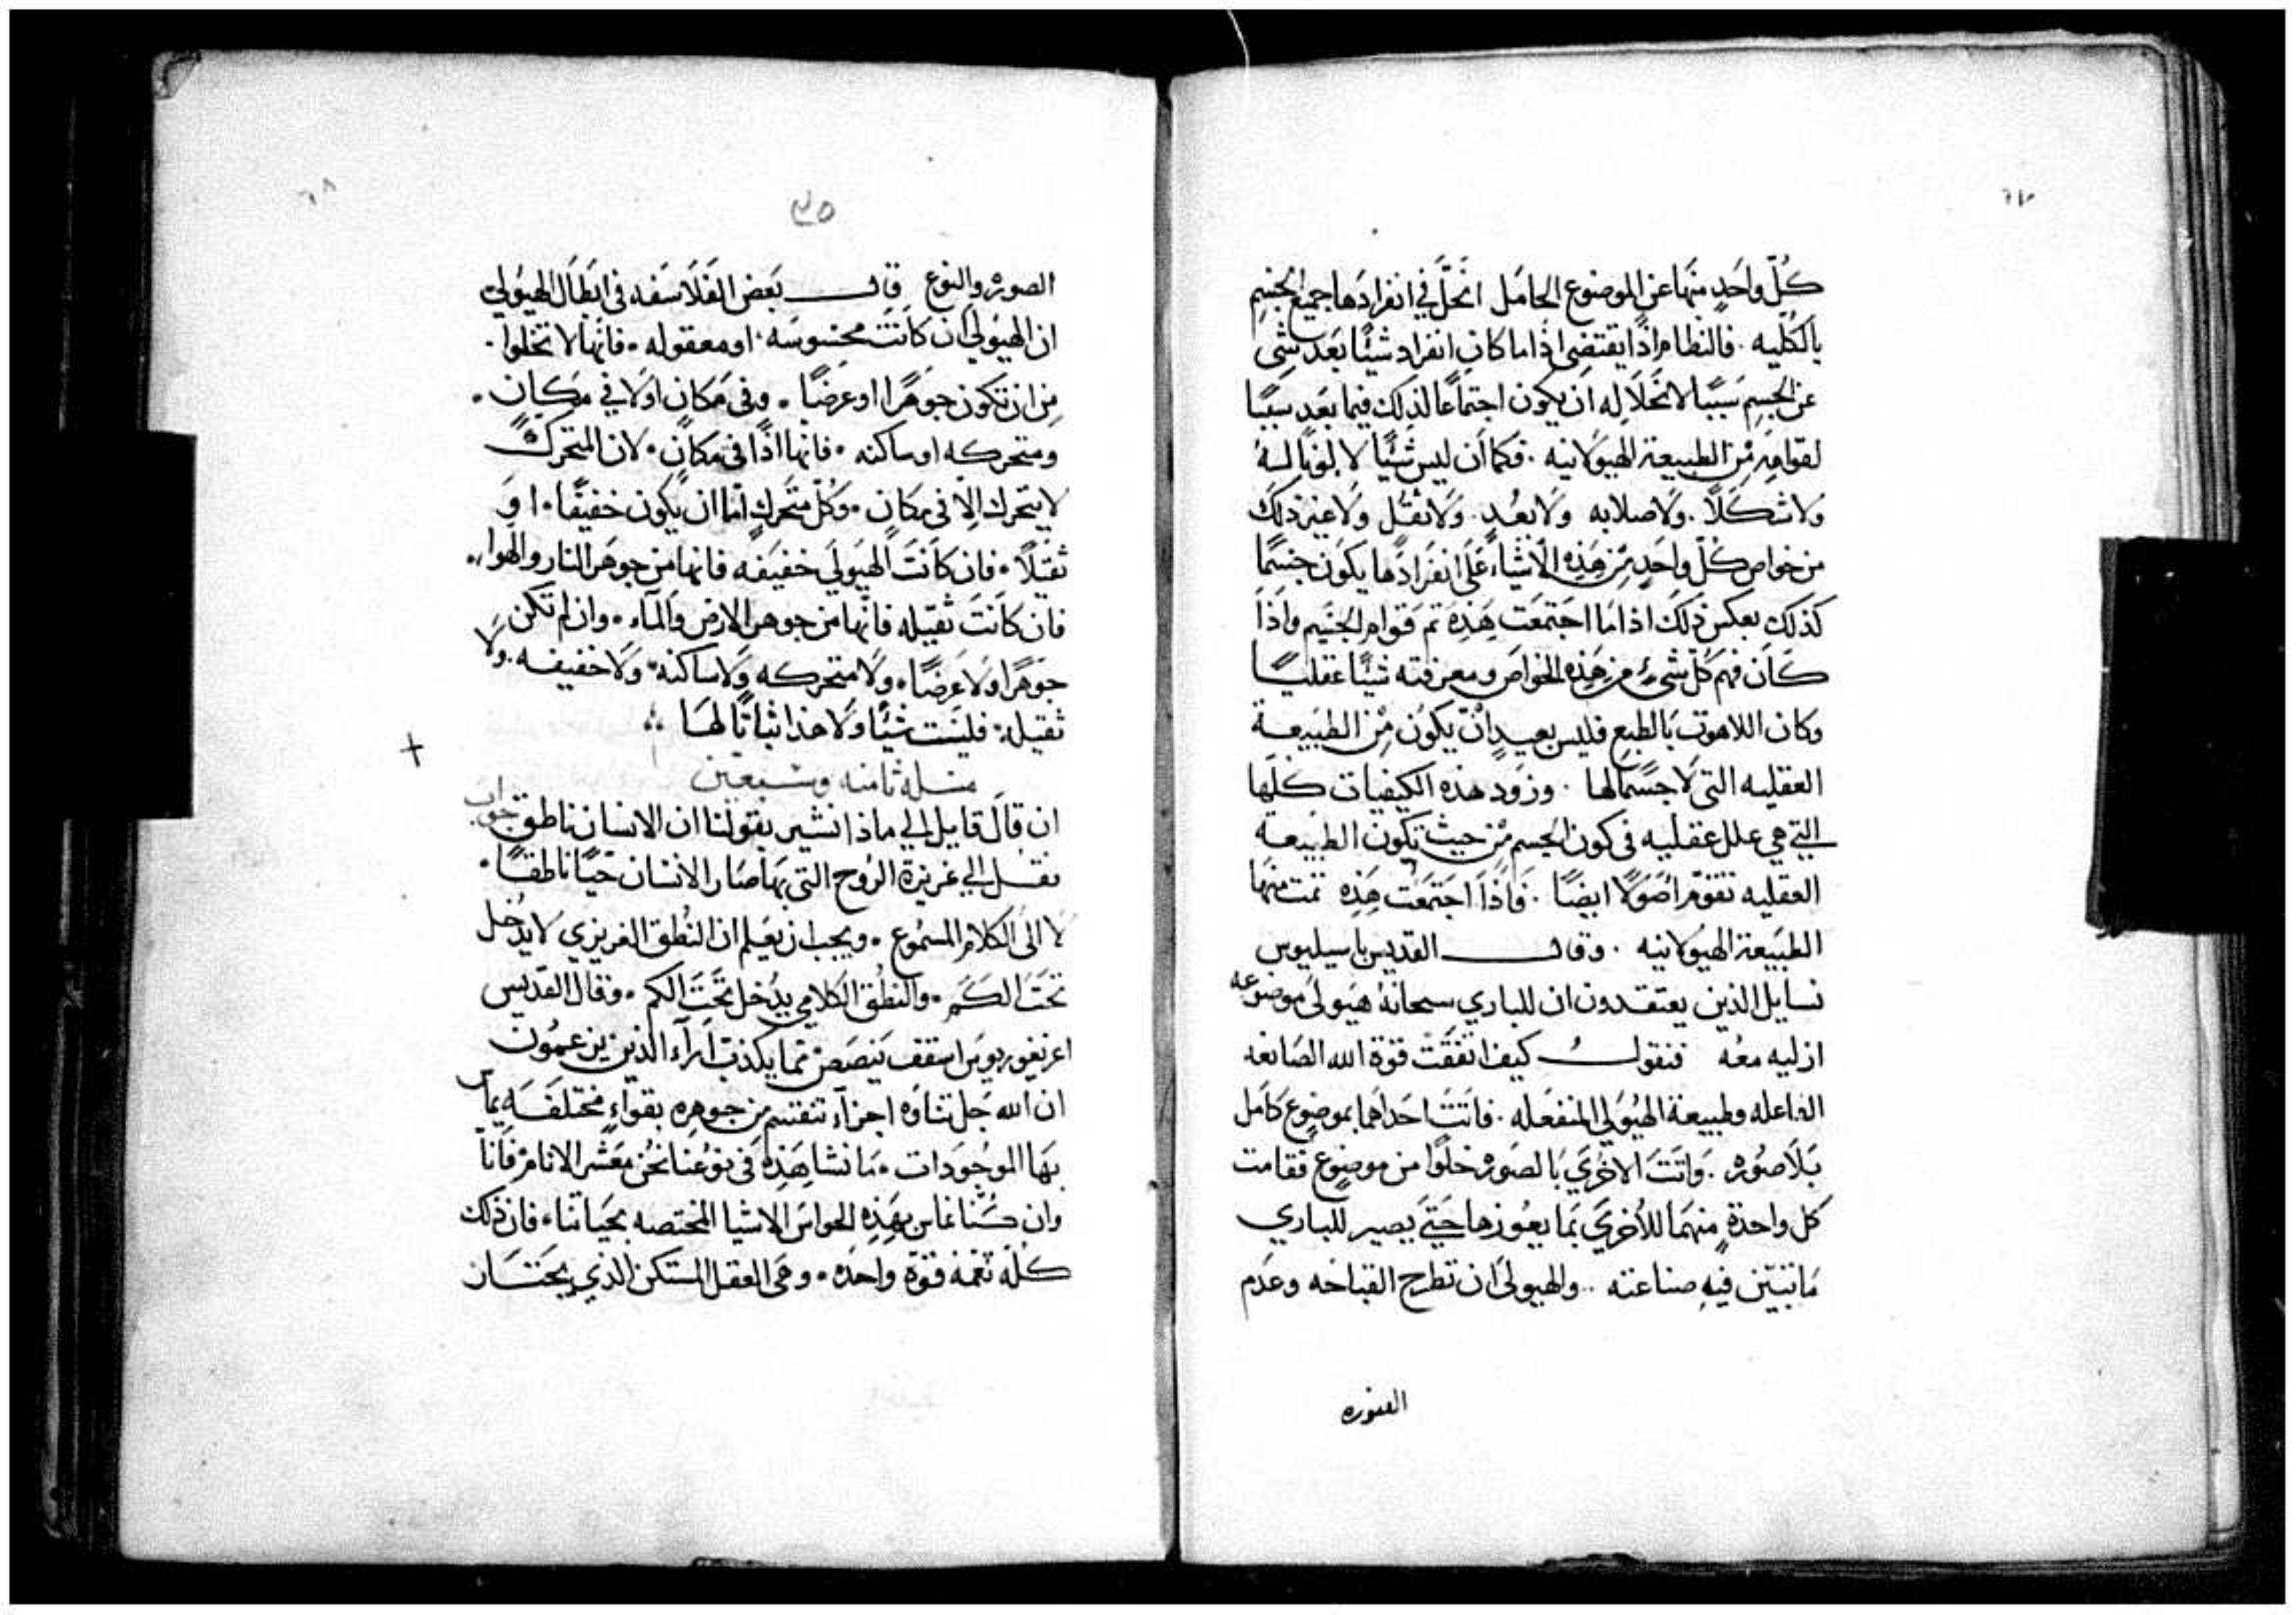 ٦٧
كُلّ واحَدٍ منهَا عَن الموضوع الحامَل انحَلَّ في انفرادهَا جميع الجسِم
بالكُلّيه . فالنظام اذًا يقتضى اذا ما كان انفراد شيئًا بَعَد شى
عن الجسِم سَببًا لانحَلَاله ان يكون اجتماعًا لذلك فيمَا بَعَد سَببًا
لقوامِه مْن الطبيعة الهيوُلانيه . فكما أن ليس شيئًا لا لونًا لهُ
ولا شكَلًا . ولَا صلابه ولَا بعُد . ولَا ثقُل ولَا غير ذلَك
من خواص كُلّ واحَدٍ مْن هَذِه الَاشيَاءَ عَلَى انفرَادهَا يكَون جسِمًا
كذلك بعكس ذلَك اذا مَا اجتمعَت هَذِه تم قَوام الجسَيم واذَا
كَان فهم كُل شىءٌ مِن هَذِه الخواصَ ومعرفته شيئًا عقليًا
وكان اللاهوت بَالطبع فليس بعيدٍ انْ يكوُن مْن الطبَيعة
العقليه التي لَا جسَمًا لها . وزَود هذه الكيفيات كلَها
التي هي علل عقليه في كون الجسم مْن حيث تكَون الطبيعة
العقليه تقوّم اصَوَلًا ايضًا . فَاذَا اجتمَعت هَذِه تمت منهَا
الطبَيعة الهيوُلانيه . وقال القديس باسيليوس
نسايل الذين يعتقدون ان للباري سبحانهُ هيَولىَ موضوعه
ازليه معُه فنقول كيف اتفقَتْ قوّة الله الصَانعه
الفاعله وطبيعة الهيَولي المنفعَله . فاتتَ احَداهما بموضوعٍ كَامل
بَلَا صُوره . وَاتَت الاخرىَ بَالصَوره خلَوًا من موضوع فقامت
كل واحدةٍ منهمَا للأخرىَ بَما يعُوزها حَتىَ يصير للباري
مَا تتبيَّن فيهِ صناعته .. والهيولىَ ان تطرح القباحه وعدَم
الصوره
٦٨
الصوره والنوع قال بَعَض الفَلَاسَفه في ابطَال الهيَوليَ
ان الهيَولىَ ان كَانت محسَوسَه . او معقوله . فانها لا تخلوا .
من ان تكون جوَهرًا او عرضًا . وفى مَكان اولَا في مَكانٍ .
ومتحركه او ساكنه . فانها اذًا فى مَكان . لان المتحرك
لا يتحرك الا في مكان . وكُلّ متحَرك امّا ان يكون خفيفًا . او
ثقيلًا . فان كَانت الهيَولىَ خفيَفه فانها من جوهَر النار والهوا .
فان كَانتَ ثقيله فانهَا من جوهر الارض والمَاء . وان لم تكَن
جَوهرًا ولَا عَرضًا . ولَا متحركه ولَا ساكنه . ولَا خفيفه . ولَا
ثقيلة . فليسَت شيئًا ولَا هذا ثباتًا لهَا
مسله ثامنه وسَبعَين
ان قالَ قايل الي ماذا نشير بقولنا ان الانسان ناطق جواب
نقُل الي غريزة الرُوح التى بهَا صَار الانسان حَيًا ناطقًا .
لَا الى الكلَام المسموع . ويجب ان يعَلم ان النُطق الغريزي لا يدُخل
تحَت الكَم . والنُطق الكَلامي يدُخل تحَت الكم . وقال القدَيس
اغريغوريوس اسقف نيصَصْ مما يكذب ارَآء الذين يزعمُون
ان الله جَل ثناوَه اجزآء تنقسم من جوهره بقواءٍ مختلفَه يماس
بهَا الموجُودات . مَا نشاهَده في نوعُنا نحُن معَشر الانام فَانَا
وان كُنَا نماس بهَذِه الحواسَ الاشيا المختصه بحَياتنا . فان ذلك
كلهُ تَمهُ قوّة واحدَه . وهى العقل المستكن الذي يجَتاز